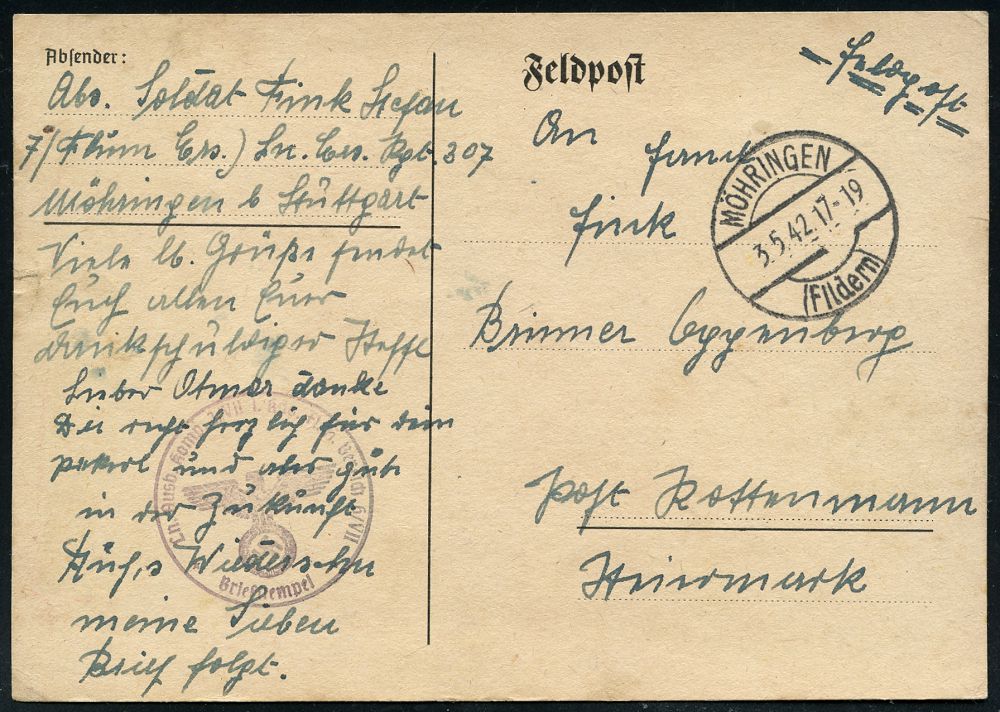 Absender:
Abs. Soldat Fink Stefan
7/(Flum Ers.) Ln. Ers. Rgt. 307
Möhringen b Stuttgart
Viele lb. Grüße sendet
Euch allen Euer
dankschuldiger Steffl
Lieber Otmar danke
Dir recht herzlich für dein
paketl und alles gute
in der Zukunft
Auf,s Wiedersehn
meine Lieben
Brief folgt.
Briefstempel
Feldpost
= Feldpost =
An
fink
MÖHRINGEN
3.5.42.17-19
(Fildern)
Brunner Oppenberg
Post Rottenmann
Steiermark